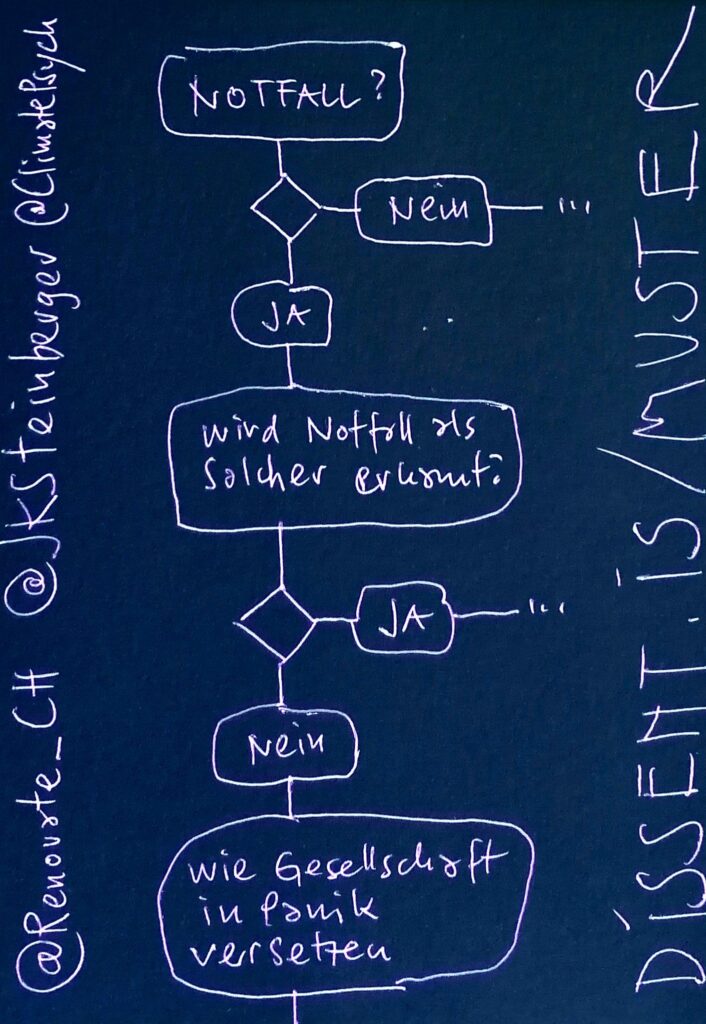 @Renovate_CH @JKSteinberger @ClimatePsych
NOTFALL?
Nein
...
JA
wird Notfall als
Solcher erkannt?
JA
...
Nein
wie Gesellschaft
in Panik
versetzen
DISSENT.is/MUSTER